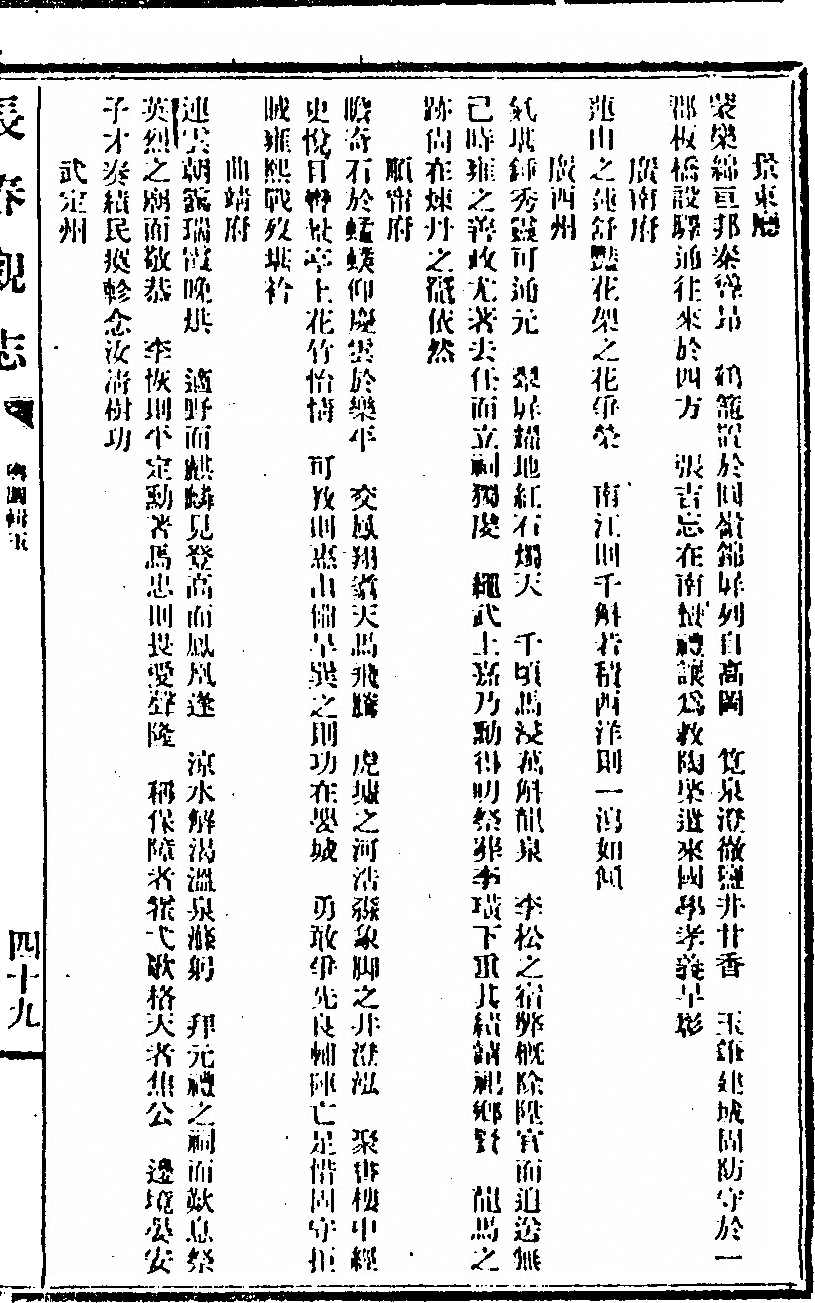 景東廳
蒙樂綿亘邦泰聳昂　鶴籠置於回嶺錦屏列自高岡　筧泉澄徹鹽井甘香　玉筆建城固防守於一
郡板橋設驛通往來於四方　張吉忘在南蠻禮讓爲教陶榮進來國學孝義早彰
廣南府
蓮山之蓮舒豔花架之花爭榮　南江則千斛若積西洋則一瀉如傾
廣西州
氣堪鍾秀靈可通元　翠屏耀地紅石燭天　千頃馬浸萬斛龍泉　李松之宿弊概除陞官而追送無
已時雍之善政尤著去任而立祠獨虔　繩武上嘉乃勳得明祭葬李璜下重其績請祀鄉賢　龍馬之
跡尚在煉丹之竈依然
順甯府
瞻奇石於蜢蟆仰慶雲於樂平　交鳳翔翥天馬飛騰　虎墟之河浩淼象脚之井澄泓　聚書樓中經
史悅目辨趾亭上花竹怡情　可教則惠由備旱巽之則功在嬰城　勇敢爭先良輔陣亡足惜固守拒
賊雍熙戰歿堪衿
曲靖府
連雲朝靄瑞霞晚烘　適野而麒麟見登高而鳳凰逢　涼水解渴溫泉滌躬　拜元禮之祠而歎息祭
英烈之廟而敬恭　李恢則平定勳著馬忠則畏愛聲隆　稱保障者蔡弋歌格天者焦公　邊境晏安
子才奏績民瘼軫念汝淸樹功
武定州
長春觀志
四十九